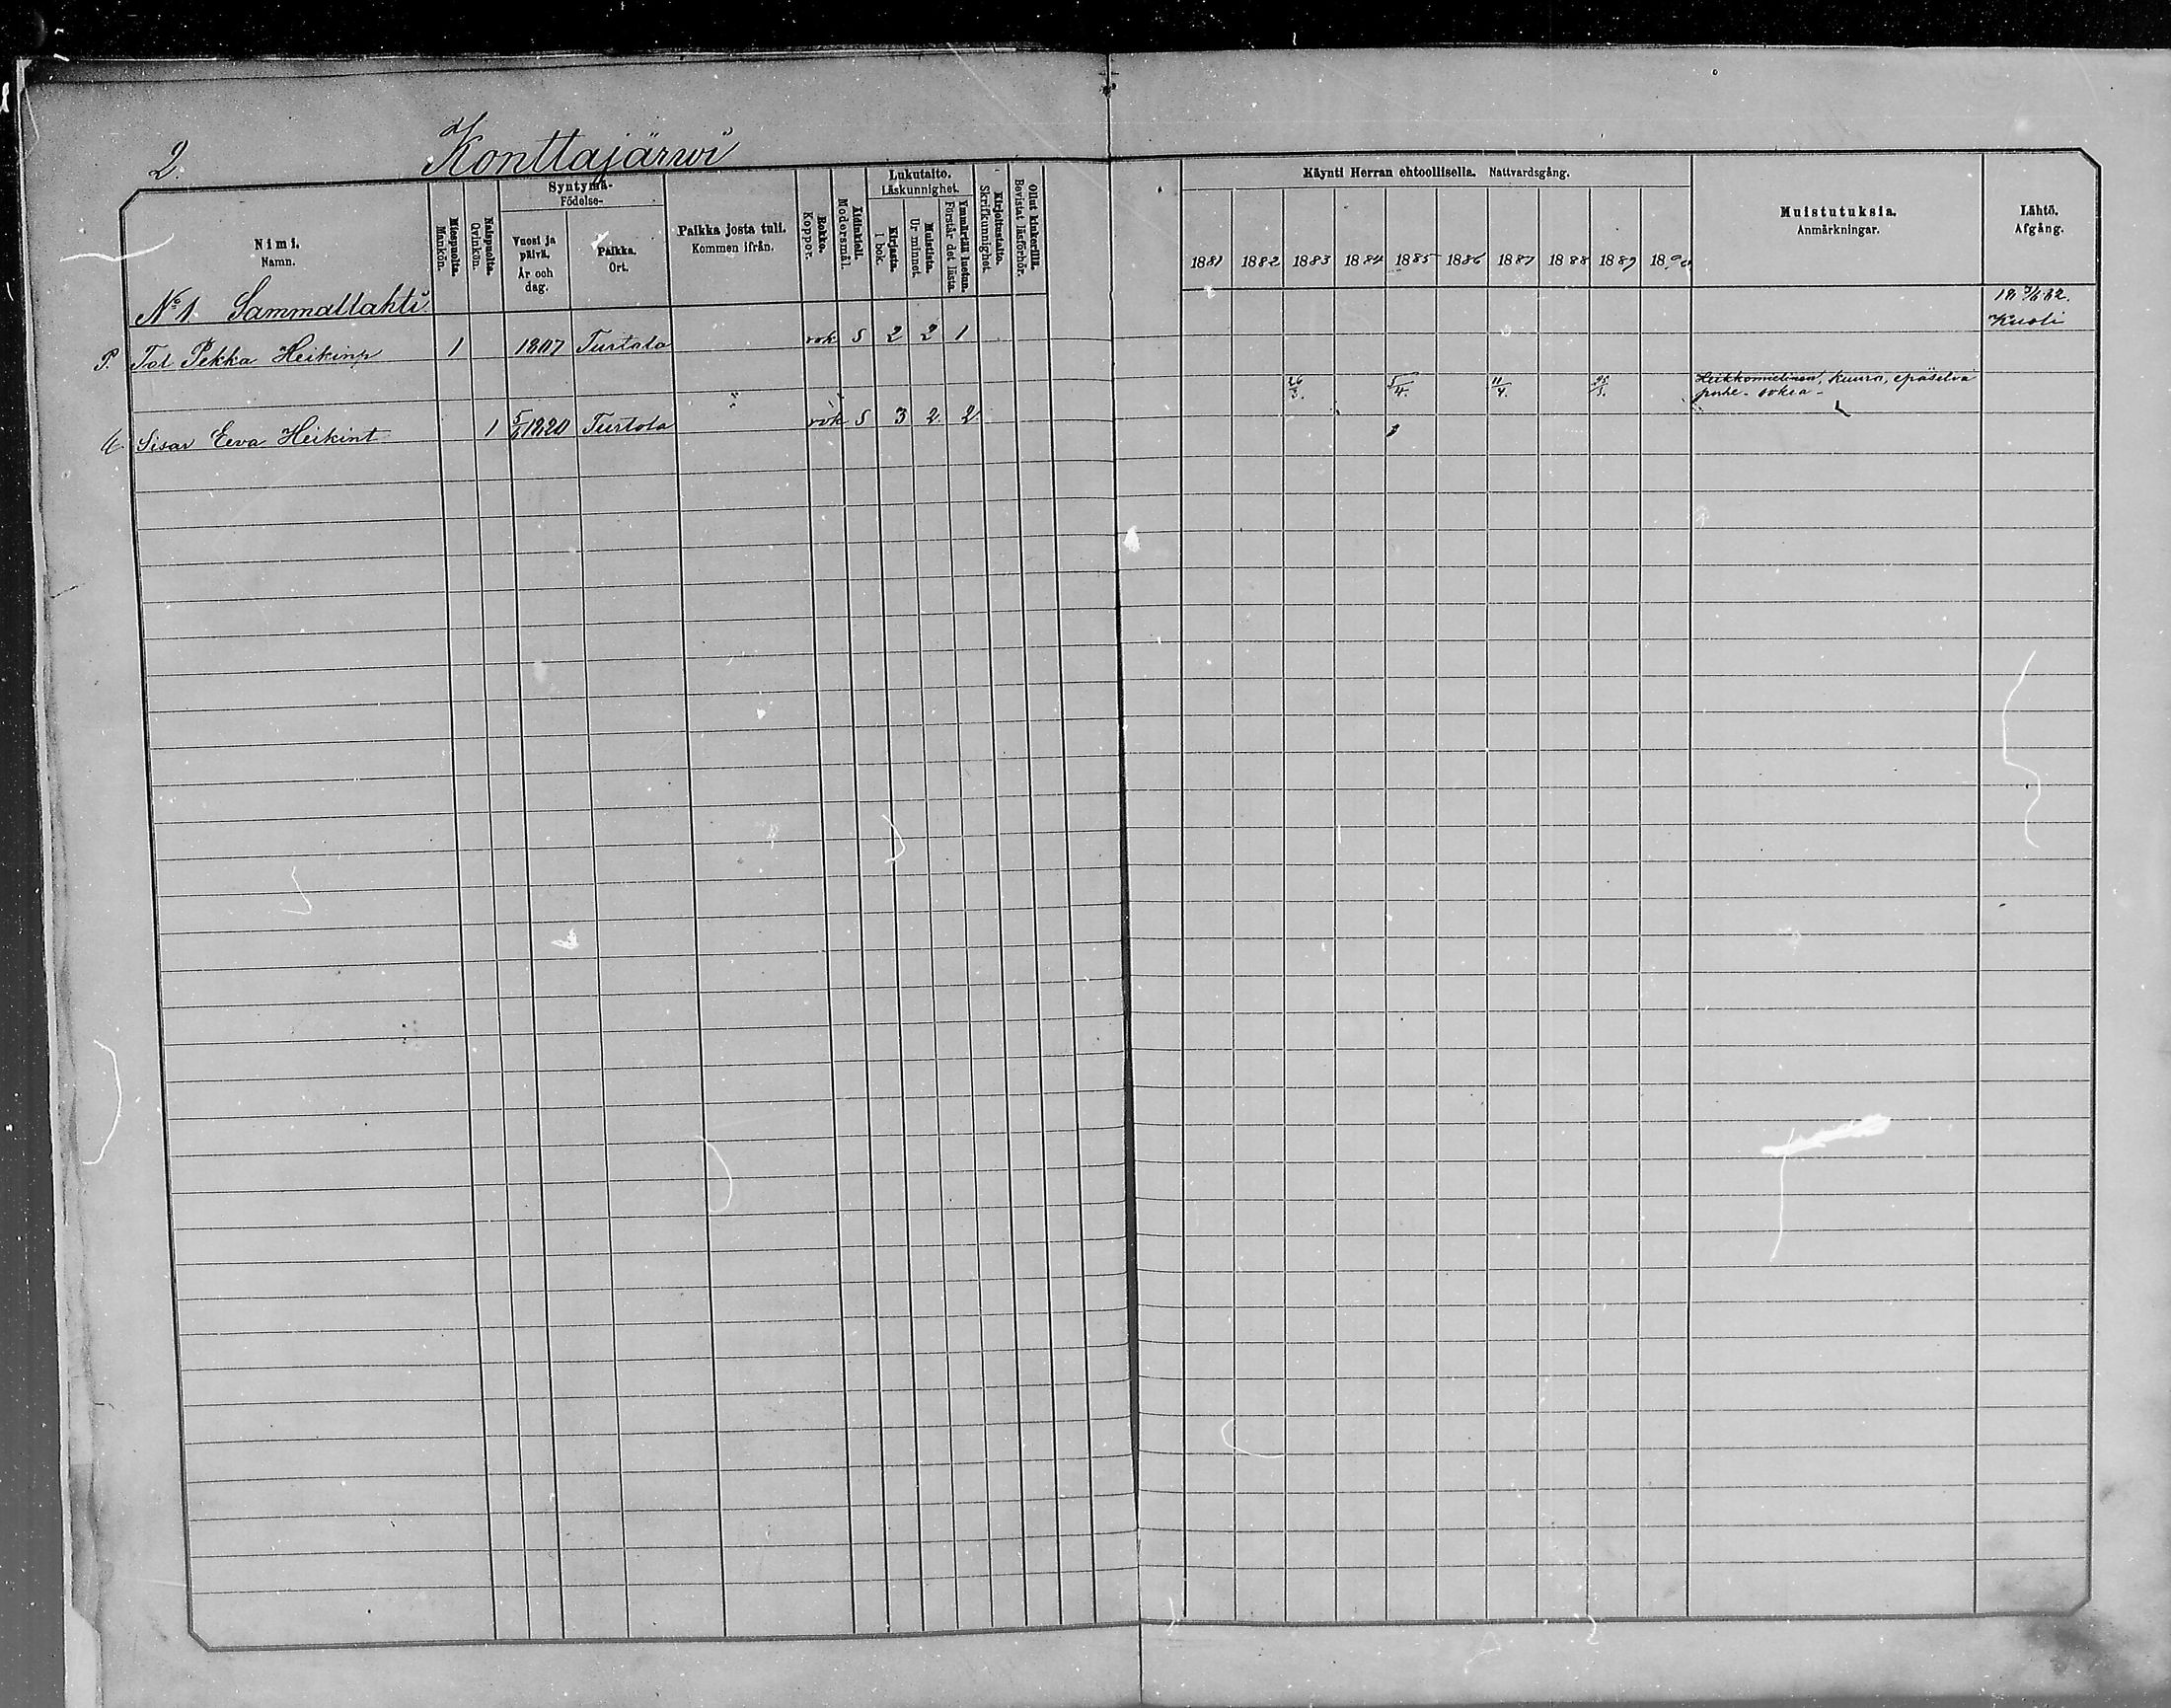 2.
Konttajärwi
Nimi.
Namn.
Miespuolta.
Mankön.
Naispuolta.
Qvinkön.
Syntymä-
Födelse-
Vuosi ja
päivä.
År och
dag.
Paikka.
Ort.
Paikka josta tuli.
Kommen ifrån.
Rokko.
Koppor.
Äidinkieli.
Modersmål.
Lukutaito.
Läskunnighet.
Kirjasta.
I bok.
Muistista.
Ur minnet.
Ymmärtää luetun.
Förstår det lästa.
Kirjoitustaito.
Skrifkunnighet.
Ollut kinkerillä.
Bevistat läsförhör.
Käynti Herran ehtoollisella. Nattvardsgång.
1881 1882 1883 1884 1885 1886 1887 1888 1889 1890
Muistutuksia.
Anmärkningar.
Lähtö.
Afgång.
No 1. Sammallahti.
P. Tal Pekka Heikinp 1 1807 Turtola rok S 2 2 1 Kuoli
Sisar Eeva Heikint 1 5/6 1820 Turtola " rok S 3 2 2 26/3. 5/4. 11/4. kuuro, epäselvä
puhe